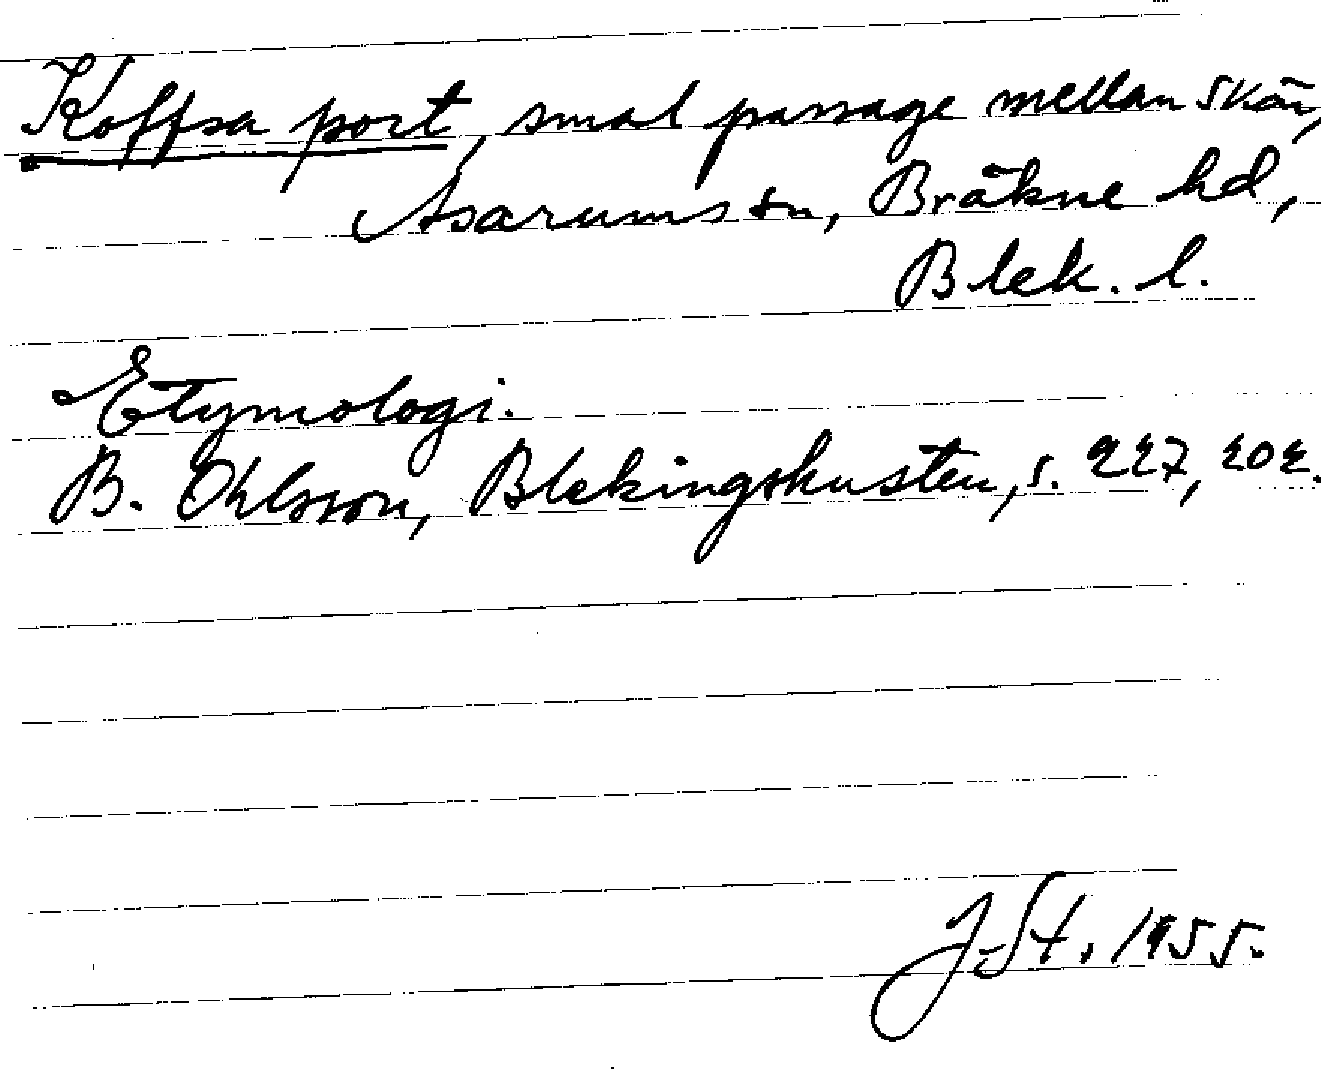 Koffsa port, smal passage mellan skär,
Asarums sn, Bräkne hd,
Blek. l.
Etymologi.
B. Ohlsson, Blekingskusten, s. 227, 202.
J. St. 1955.